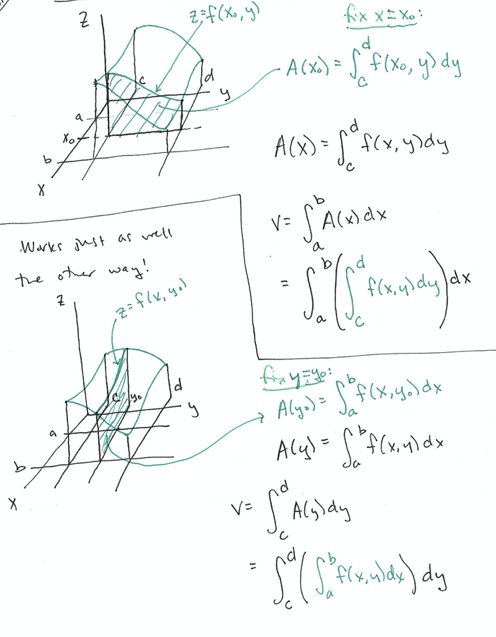 z=f(x₀,y)
fix x=x₀:
z
A(x₀) = ∫_c^d f(x₀, y) dy
c
d
y
a
x₀
b
x
A(x) = ∫_c^d f(x,y) dy
V = ∫_a^b A(x) dx
= ∫_a^b (∫_c^d f(x,y) dy) dx
Works just as well
the other way!
z
z=f(x,y₀)
fix y=y₀:
c
y₀
d
y
a
b
x
A(y₀) = ∫_a^b f(x,y₀) dx
A(y) = ∫_a^b f(x,y) dx
V = ∫_c^d A(y) dy
= ∫_c^d (∫_a^b f(x,y) dx) dy